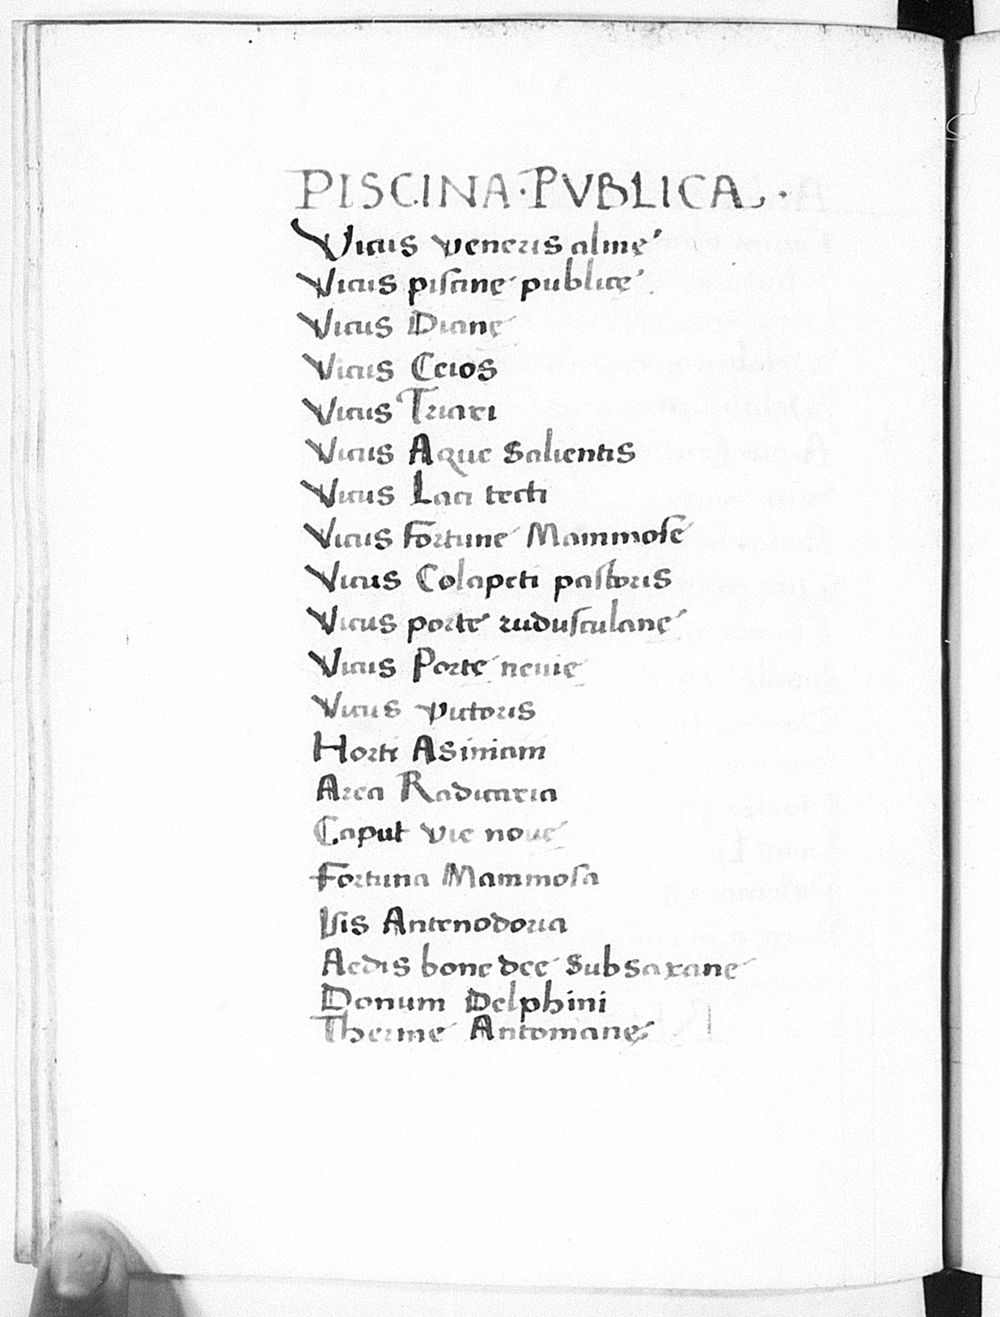 PISCINA·PVBLICA·
Vicus veneris almę
Vicus piscine publicę
Vicus Dianę
Vicus Ceios
Vicus Triari
Vicus Aque salientis
Vicus Laci tecti
Vicus Fortune Mammosę
Vicus Colapeti pastoris
Vicus porte rudusculanę
Vicus Porte neuię
Vicus victoris
Horti Asiniani
Area Radicaria
Caput vie noue
Fortuna Mammosa
Isis Antenodoria
Aedis bone dee Subsaxane
Donum Delphini
Therme Antonianę